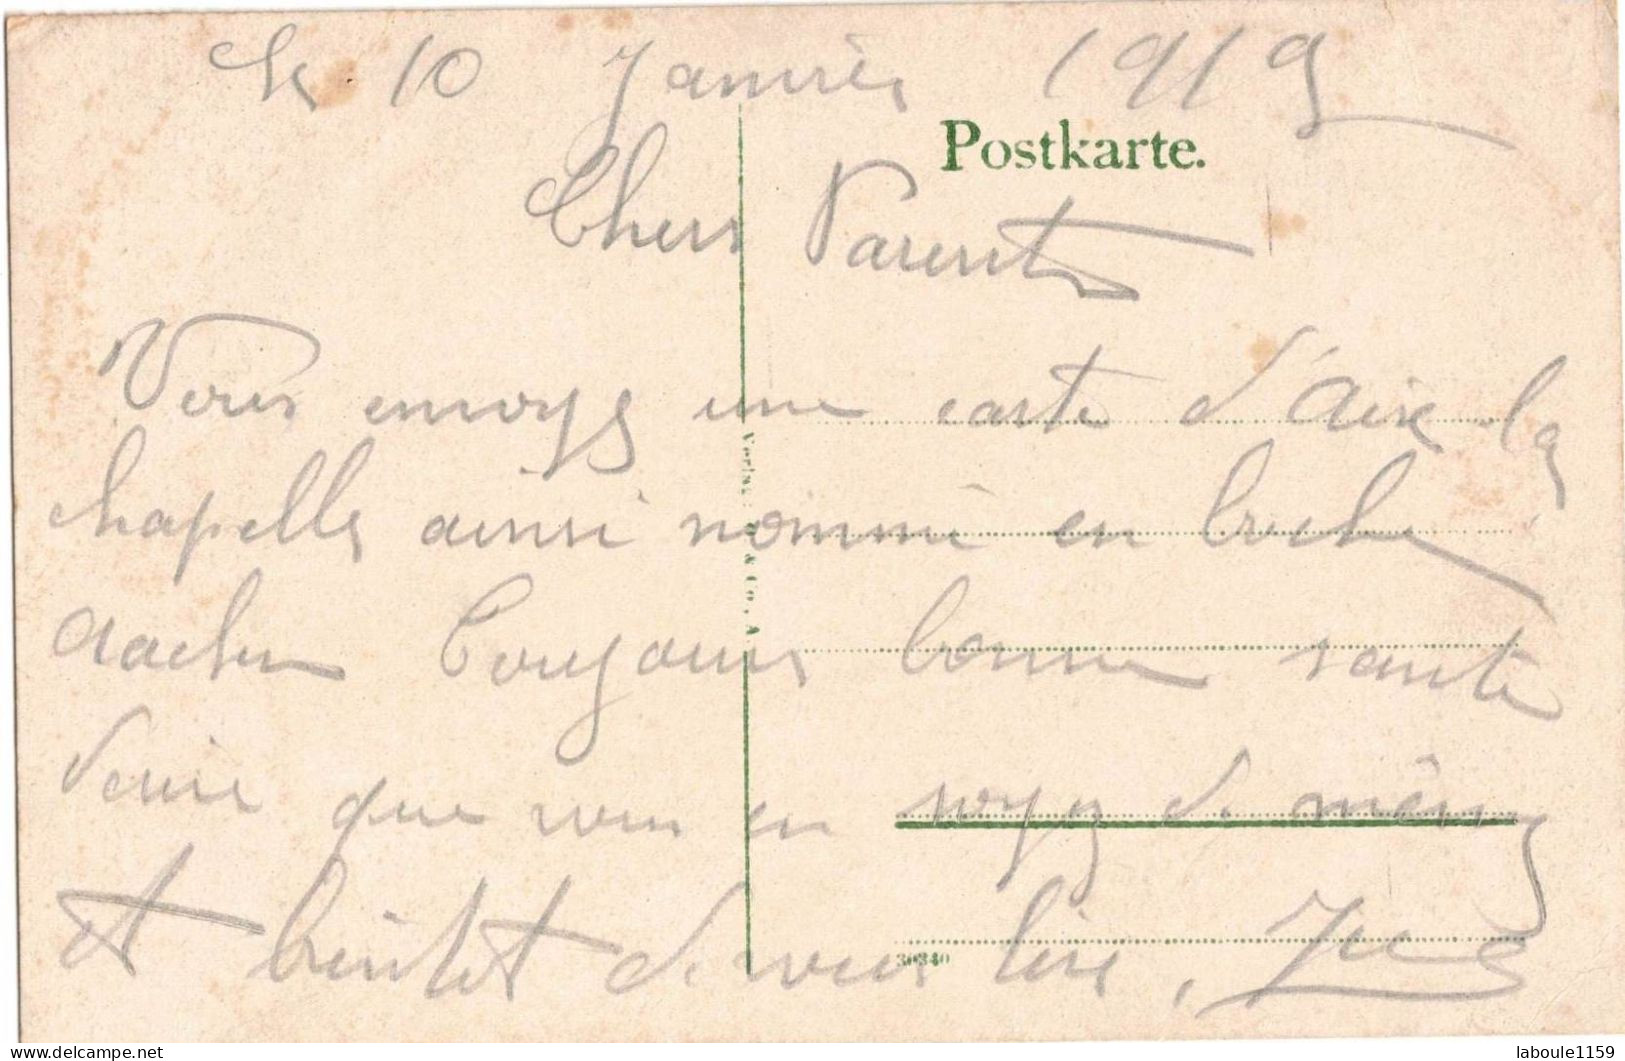 Le 10 Janvier 1919
Postkarte.
Chers Parents
Vous envoys une carte d'Aix la
chapelle ainsi nommé en boche
Aachen Toujours bonne santé
désire que vous en soyez de même
et bientôt de vous lire,
30340
delcampe.net
laboule1159